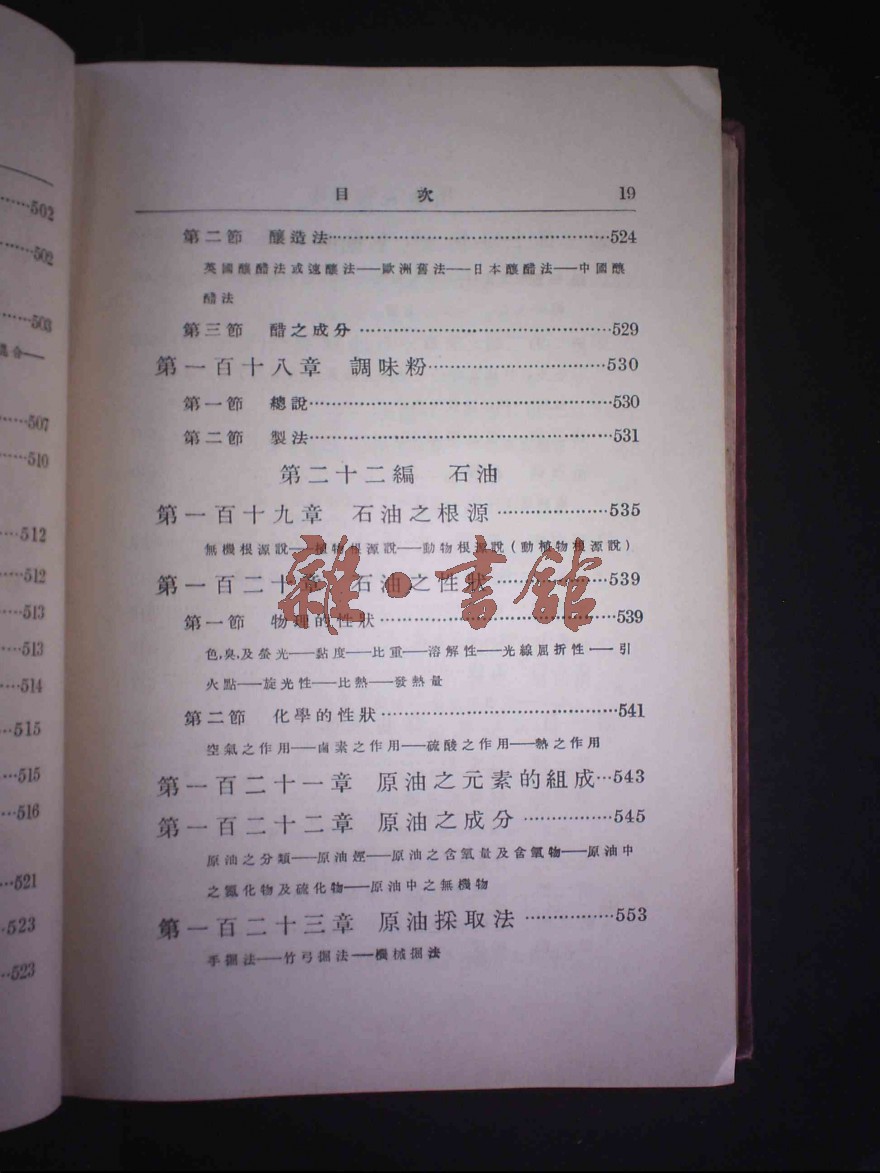 目 次 19
第二節 釀造法……524
英國釀醋法或速釀法——歐洲舊法——日本釀醋法——中國釀
醋法
第三節 醋之成分……529
第一百十八章 調味粉……530
第一節 總說……530
第二節 製法……531
第二十二編 石油
第一百十九章 石油之根源……535
無機根源說——植物根源說——動物根源說(動植物根源說)
第一百二十章 石油之性狀……539
雜·書館
第一節 物理的性狀……539
色,臭,及螢光——黏度——比重——溶解性——光線屈折性——引
火點——旋光性——比熱——發熱量
第二節 化學的性狀……541
空氣之作用——鹵素之作用——硫酸之作用——熱之作用
第一百二十一章 原油之元素的組成…543
第一百二十二章 原油之成分……545
原油之分類——原油烴——原油之含氧量及含氧物——原油中
之氮化物及硫化物——原油中之無機物
第一百二十三章 原油採取法……553
手掘法——竹弓掘法——機械掘法
…502
…502
…503
混合——
…507
…510
…512
…512
…513
…513
…514
…515
…515
…516
…521
…523
…523